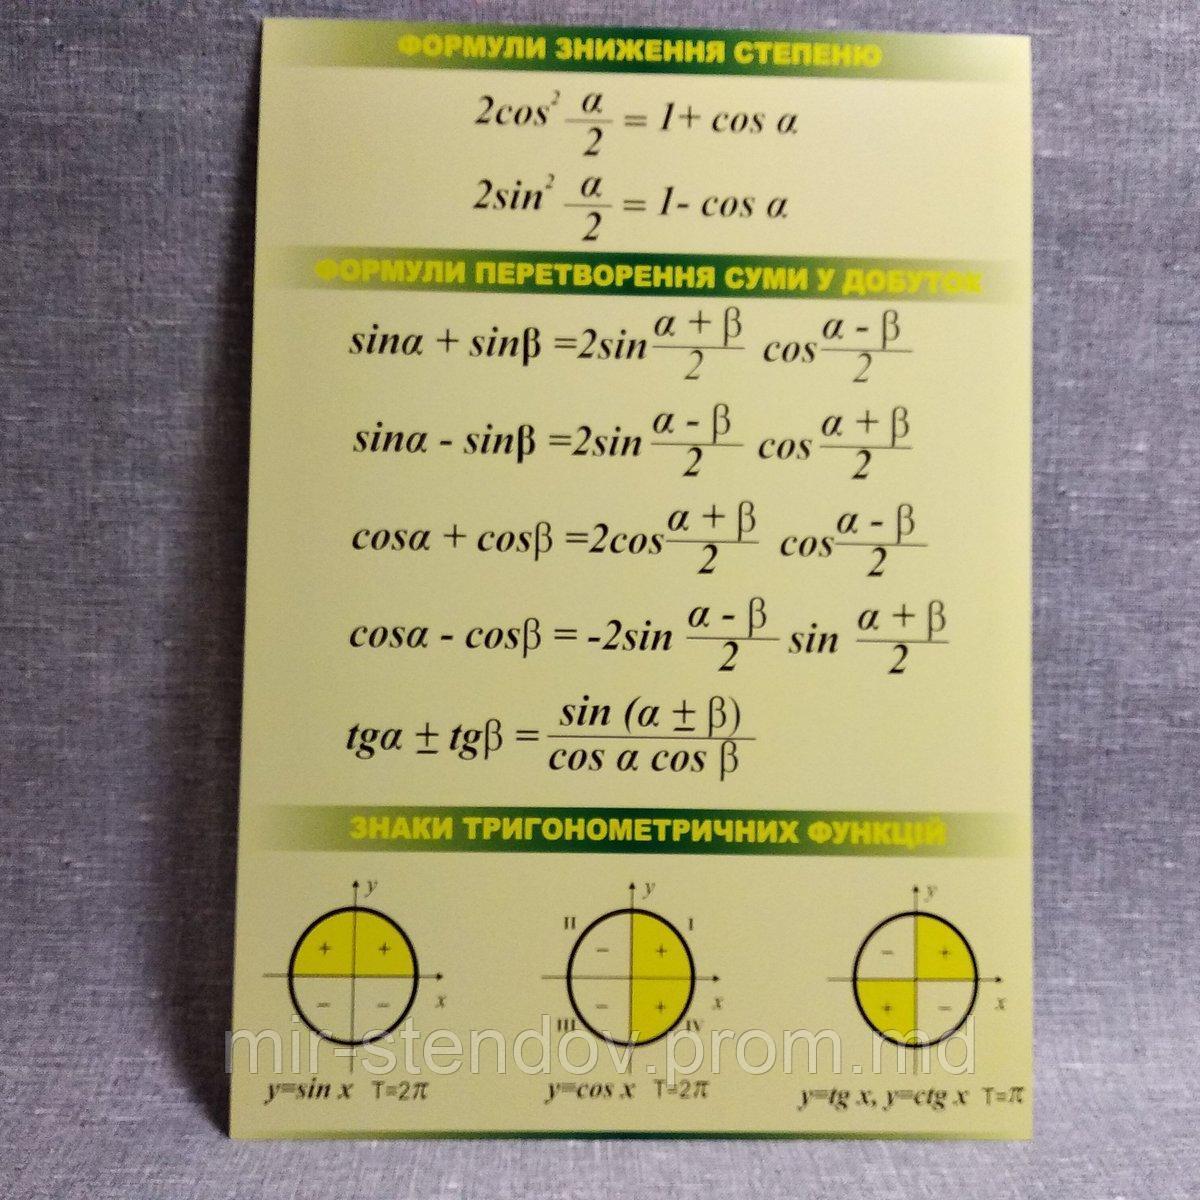 ФОРМУЛИ ЗНИЖЕННЯ СТЕПЕНЮ
2cos² α/2 = 1+ cos α
2sin² α/2 = 1- cos α
ФОРМУЛИ ПЕРЕТВОРЕННЯ СУМИ У ДОБУТОК
sinα + sinβ =2sin (α + β)/2 cos (α - β)/2
sinα - sinβ =2sin (α - β)/2 cos (α + β)/2
cosα + cosβ =2cos (α + β)/2 cos (α - β)/2
cosα - cosβ = -2sin (α - β)/2 sin (α + β)/2
tgα ± tgβ = sin (α ± β)/cos α cos β
ЗНАКИ ТРИГОНОМЕТРИЧНИХ ФУНКЦІЙ
y y y
II I
+ + − + − +
x x x
− − − + + −
III IV
mir-stendov.prom.md
y=sin x T=2π y=cos x T=2π y=tg x, y=ctg x T=π